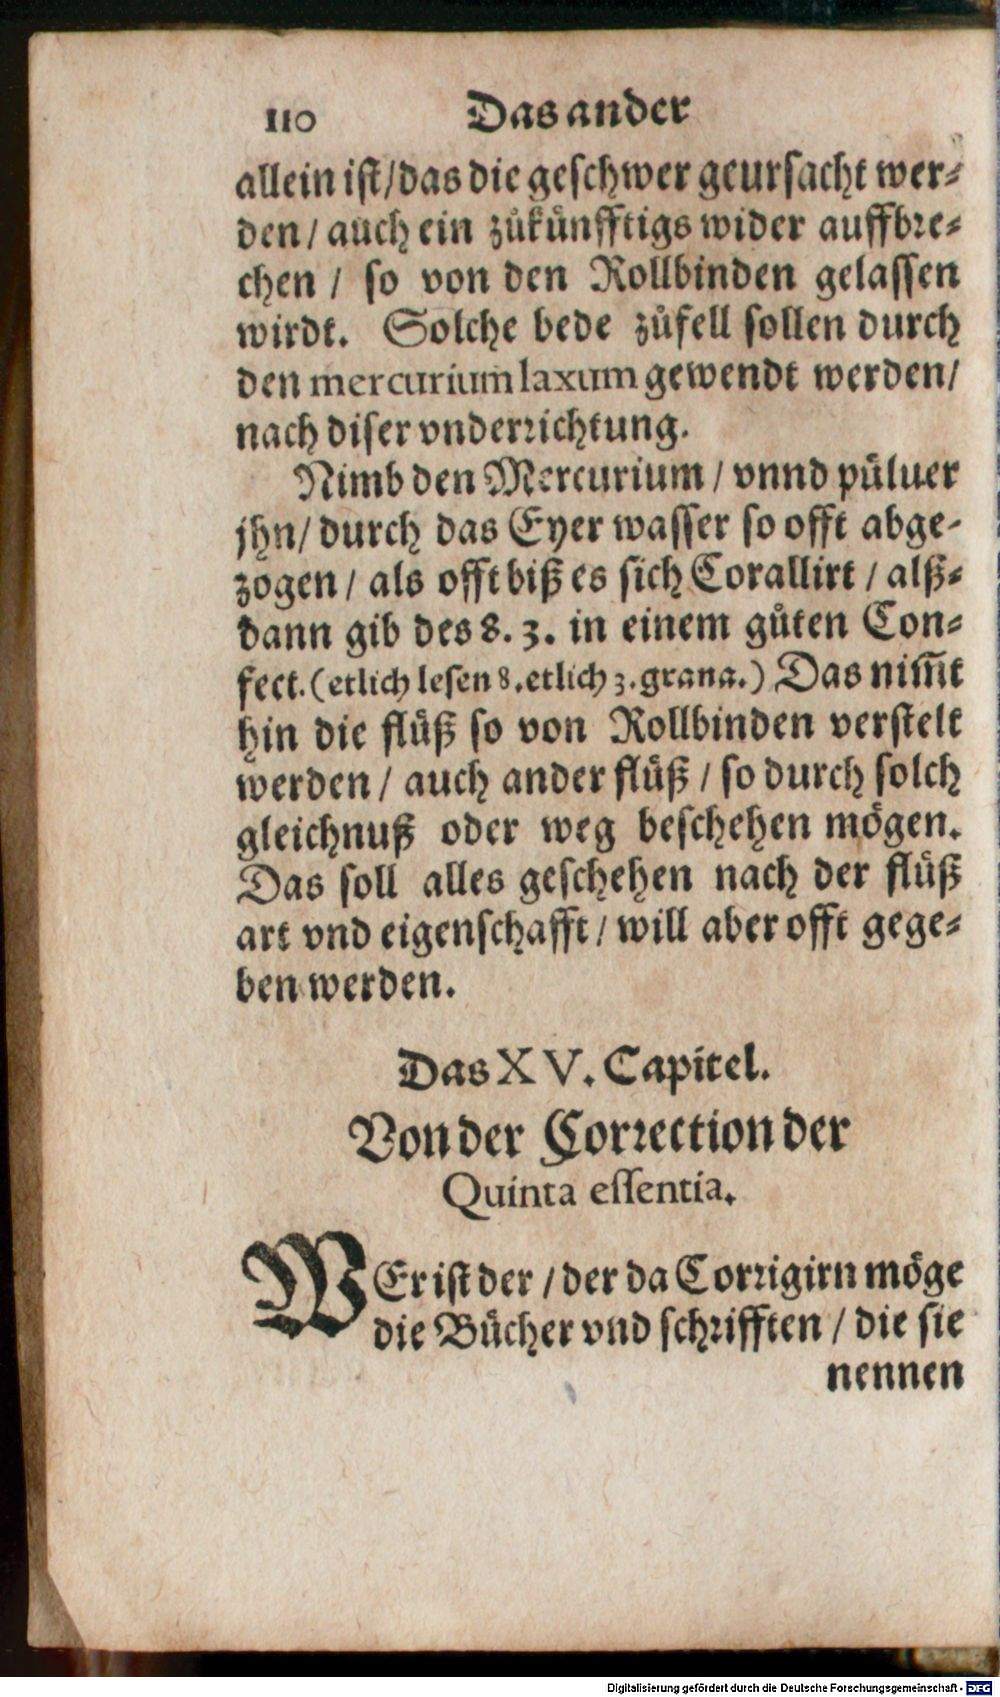 110 Das ander
allein ist/das die geschwer geursacht wer-
den/ auch ein zůkünfftigs wider auffbre-
chen / so von den Rollbinden gelassen
wirdt. Solche bede zůfell sollen durch
den mercurium laxum gewendt werden/
nach diser vnderrichtung.
Nimb den Mercurium / vnnd pülver
jhn/ durch das Eyer wasser so offt abge-
zogen / als offt biß es sich Corallirt / alß-
dann gib des 8. 3. in einem gůten Con-
fect. (etlich lesen 8. etlich 3. grana.) Das nim̅t
hin die flüß so von Rollbinden verstelt
werden / auch ander flüß / so durch solch
gleichnuß oder weg beschehen mögen.
Das soll alles geschehen nach der flüß
art vnd eigenschafft / will aber offt gege-
ben werden.
Das XV. Capitel.
Von der Correction der
Quinta essentia.
WEr ist der / der da Corrigirn möge
die Bücher vnd schrifften / die sie
nennen
Digitalisierung gefördert durch die Deutsche Forschungsgemeinschaft - DFG